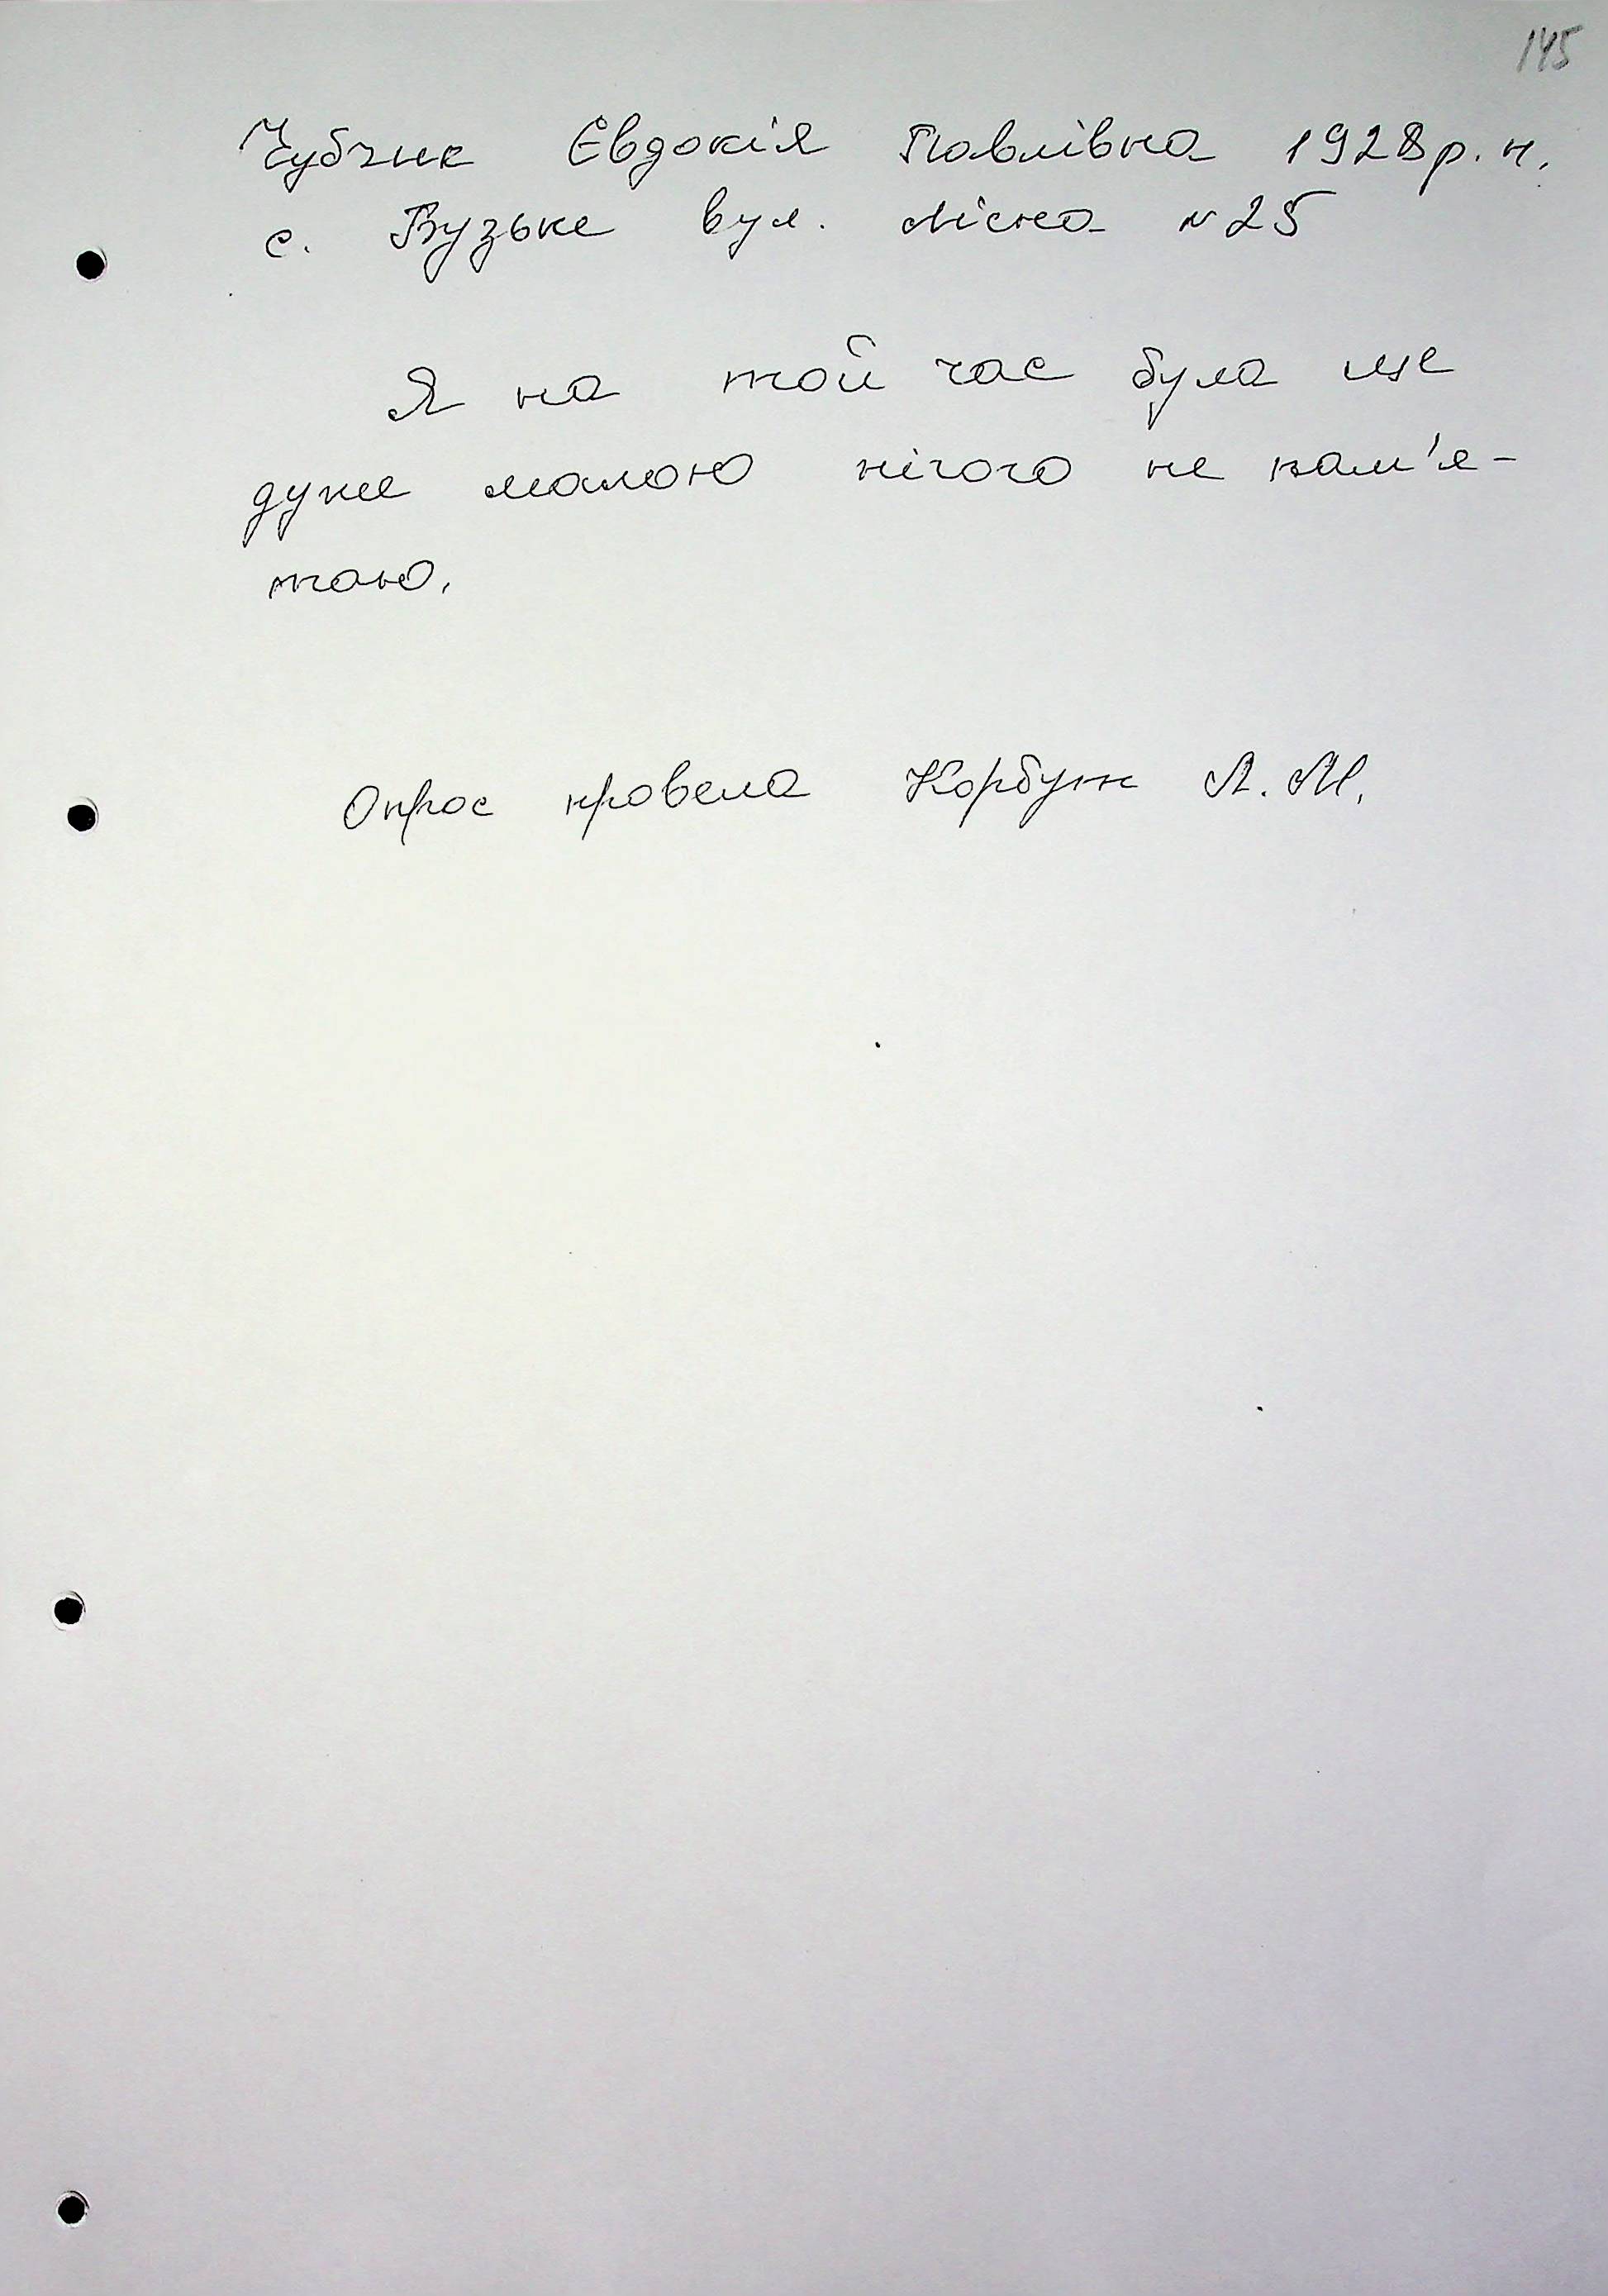 145
Чубчик Євдокія Павлівна 1928 р. н.
с. Бузьке вул. Лісна № 25
Я на той час була ще
дуже малою нічого не пам'я-
таю.
Опрос провела Корбут Л. М.